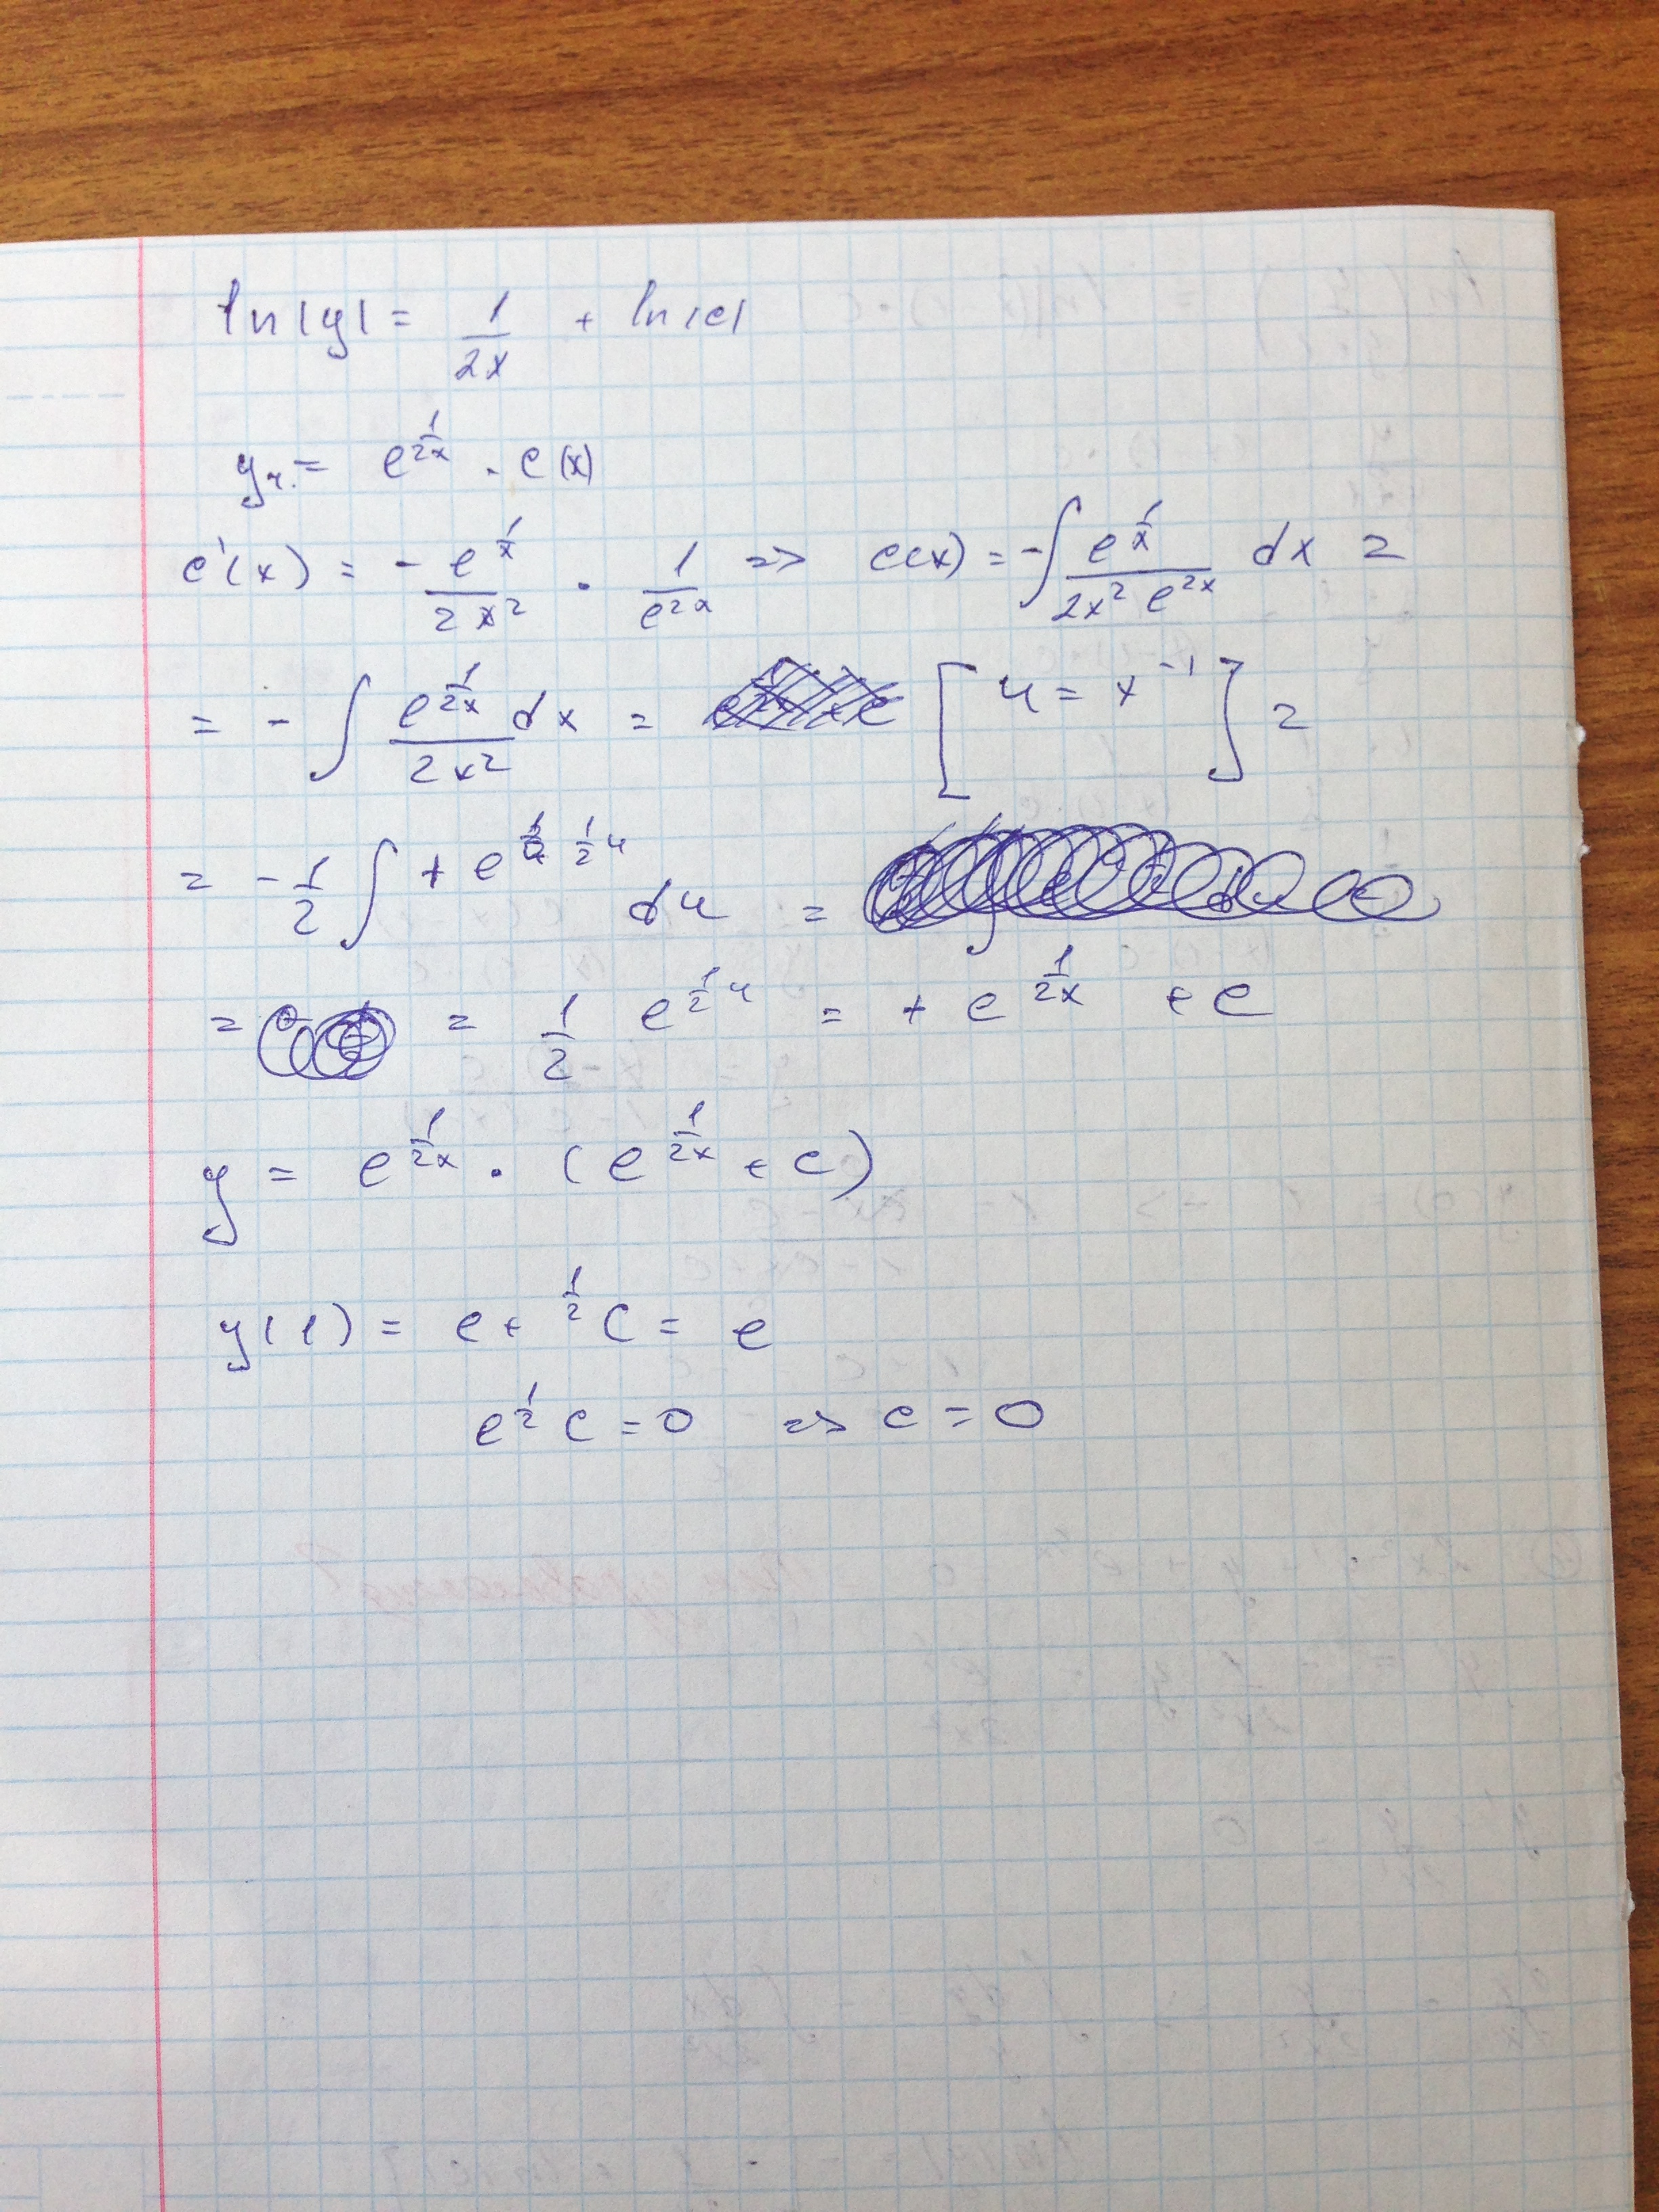 ln|y| = 1/2x + ln|c|
yч. = e^(1/2x) · c(x)
c'(x) = - e^(1/x)/2x² · 1/e^(2x) => c(x) = -∫ e^(1/x)/(2x² e^(2x)) dx =
= - ∫ e^(1/2x)/2x² dx = [ u = x⁻¹ ] =
= - 1/2 ∫ + e^(1/2 u) du =
= = 1/2 e^(1/2 u) = + e^(1/2x) + c
y = e^(1/2x) · (e^(1/2x) + c)
y(1) = e + ^(1/2) C = e
e^(1/2) c = 0 => c = 0